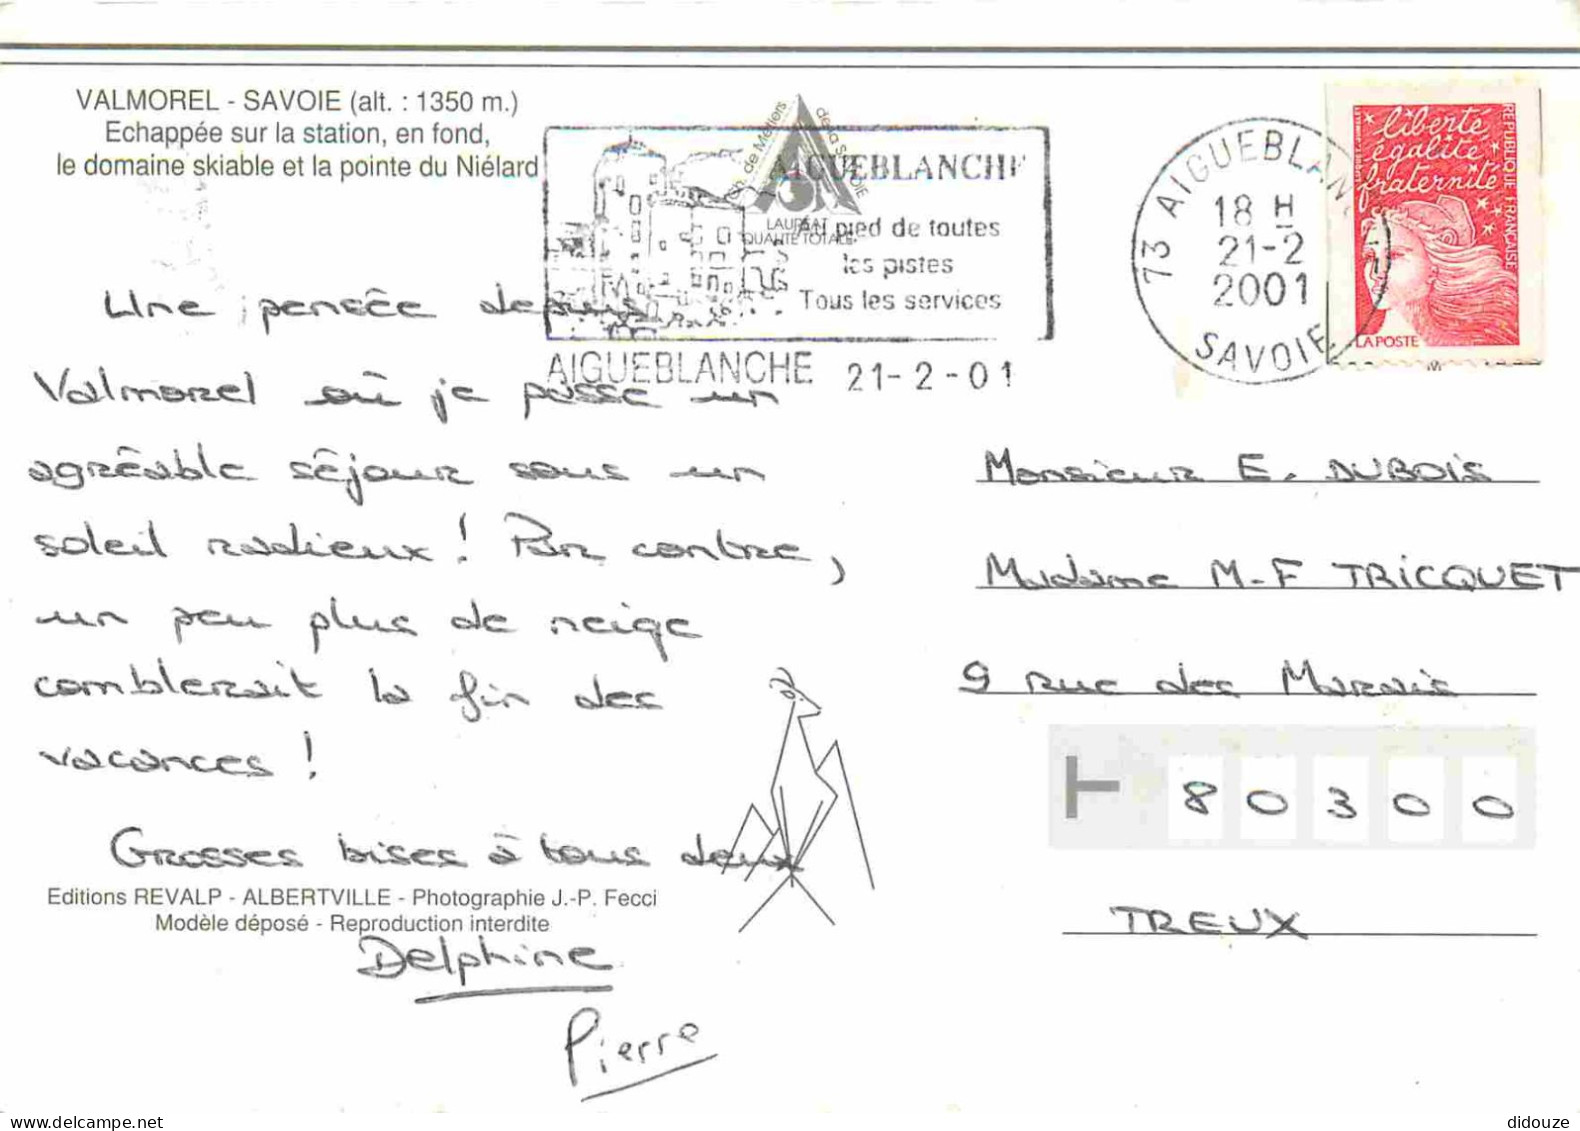 VALMOREL - SAVOIE (alt. : 1350 m.)
Echappée sur la station, en fond,
le domaine skiable et la pointe du Niélard
Ch. de Métiers de la SAVOIE
LAURÉAT
QUALITÉ TOTALE
AIGUEBLANCHE
Au pied de toutes
les pistes
Tous les services
AIGUEBLANCHE 21-2-01
73 AIGUEBLAN
18 H
21-2
2001
SAVOIE
liberté
égalité
fraternité
RÉPUBLIQUE FRANÇAISE
LA POSTE
Une pensée depuis
Valmorel où je passe un
agréable séjour sous un
soleil radieux ! Par contre,
un peu plus de neige
comblerait la fin des
vacances !
Grosses bises à tous deux
Editions REVALP - ALBERTVILLE - Photographie J.-P. Fecci
Modèle déposé - Reproduction interdite
Delphine
Pierre
Monsieur E. DUBOIS
Madame M-F TRICQUET
9 rue des Marais
T 80300
TREUX
didouze